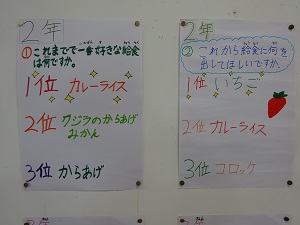 2年
①これまでで一番好きな給食
は何ですか。
1位 カレーライス
2位 クジラのからあげ
みかん
3位 からあげ
2年
②これから給食に何を
出してほしいですか。
1位 いちご
2位 カレーライス
3位 コロッケ